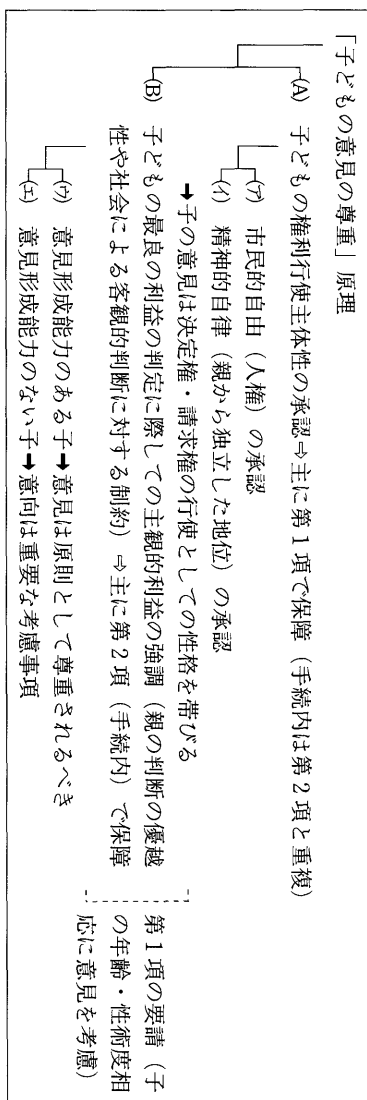 「子どもの意見の尊重」原理
(A) 子どもの権利行使主体性の承認⇨主に第1項で保障（手続内は第2項と重複）
(ア) 市民的自由（人権）の承認
(イ) 精神的自律（親から独立した地位）の承認
➡子の意見は決定権・請求権の行使としての性格を帯びる
(B) 子どもの最良の利益の判定に際しての主観的利益の強調（親の判断の優越
性や社会による客観的判断に対する制約）⇨主に第2項（手続内）で保障
(ウ) 意見形成能力のある子➡意見は原則として尊重されるべき
(エ) 意見形成能力のない子➡意向は重要な考慮事項
第1項の要請（子
の年齢・性術度相
応に意見を考慮）